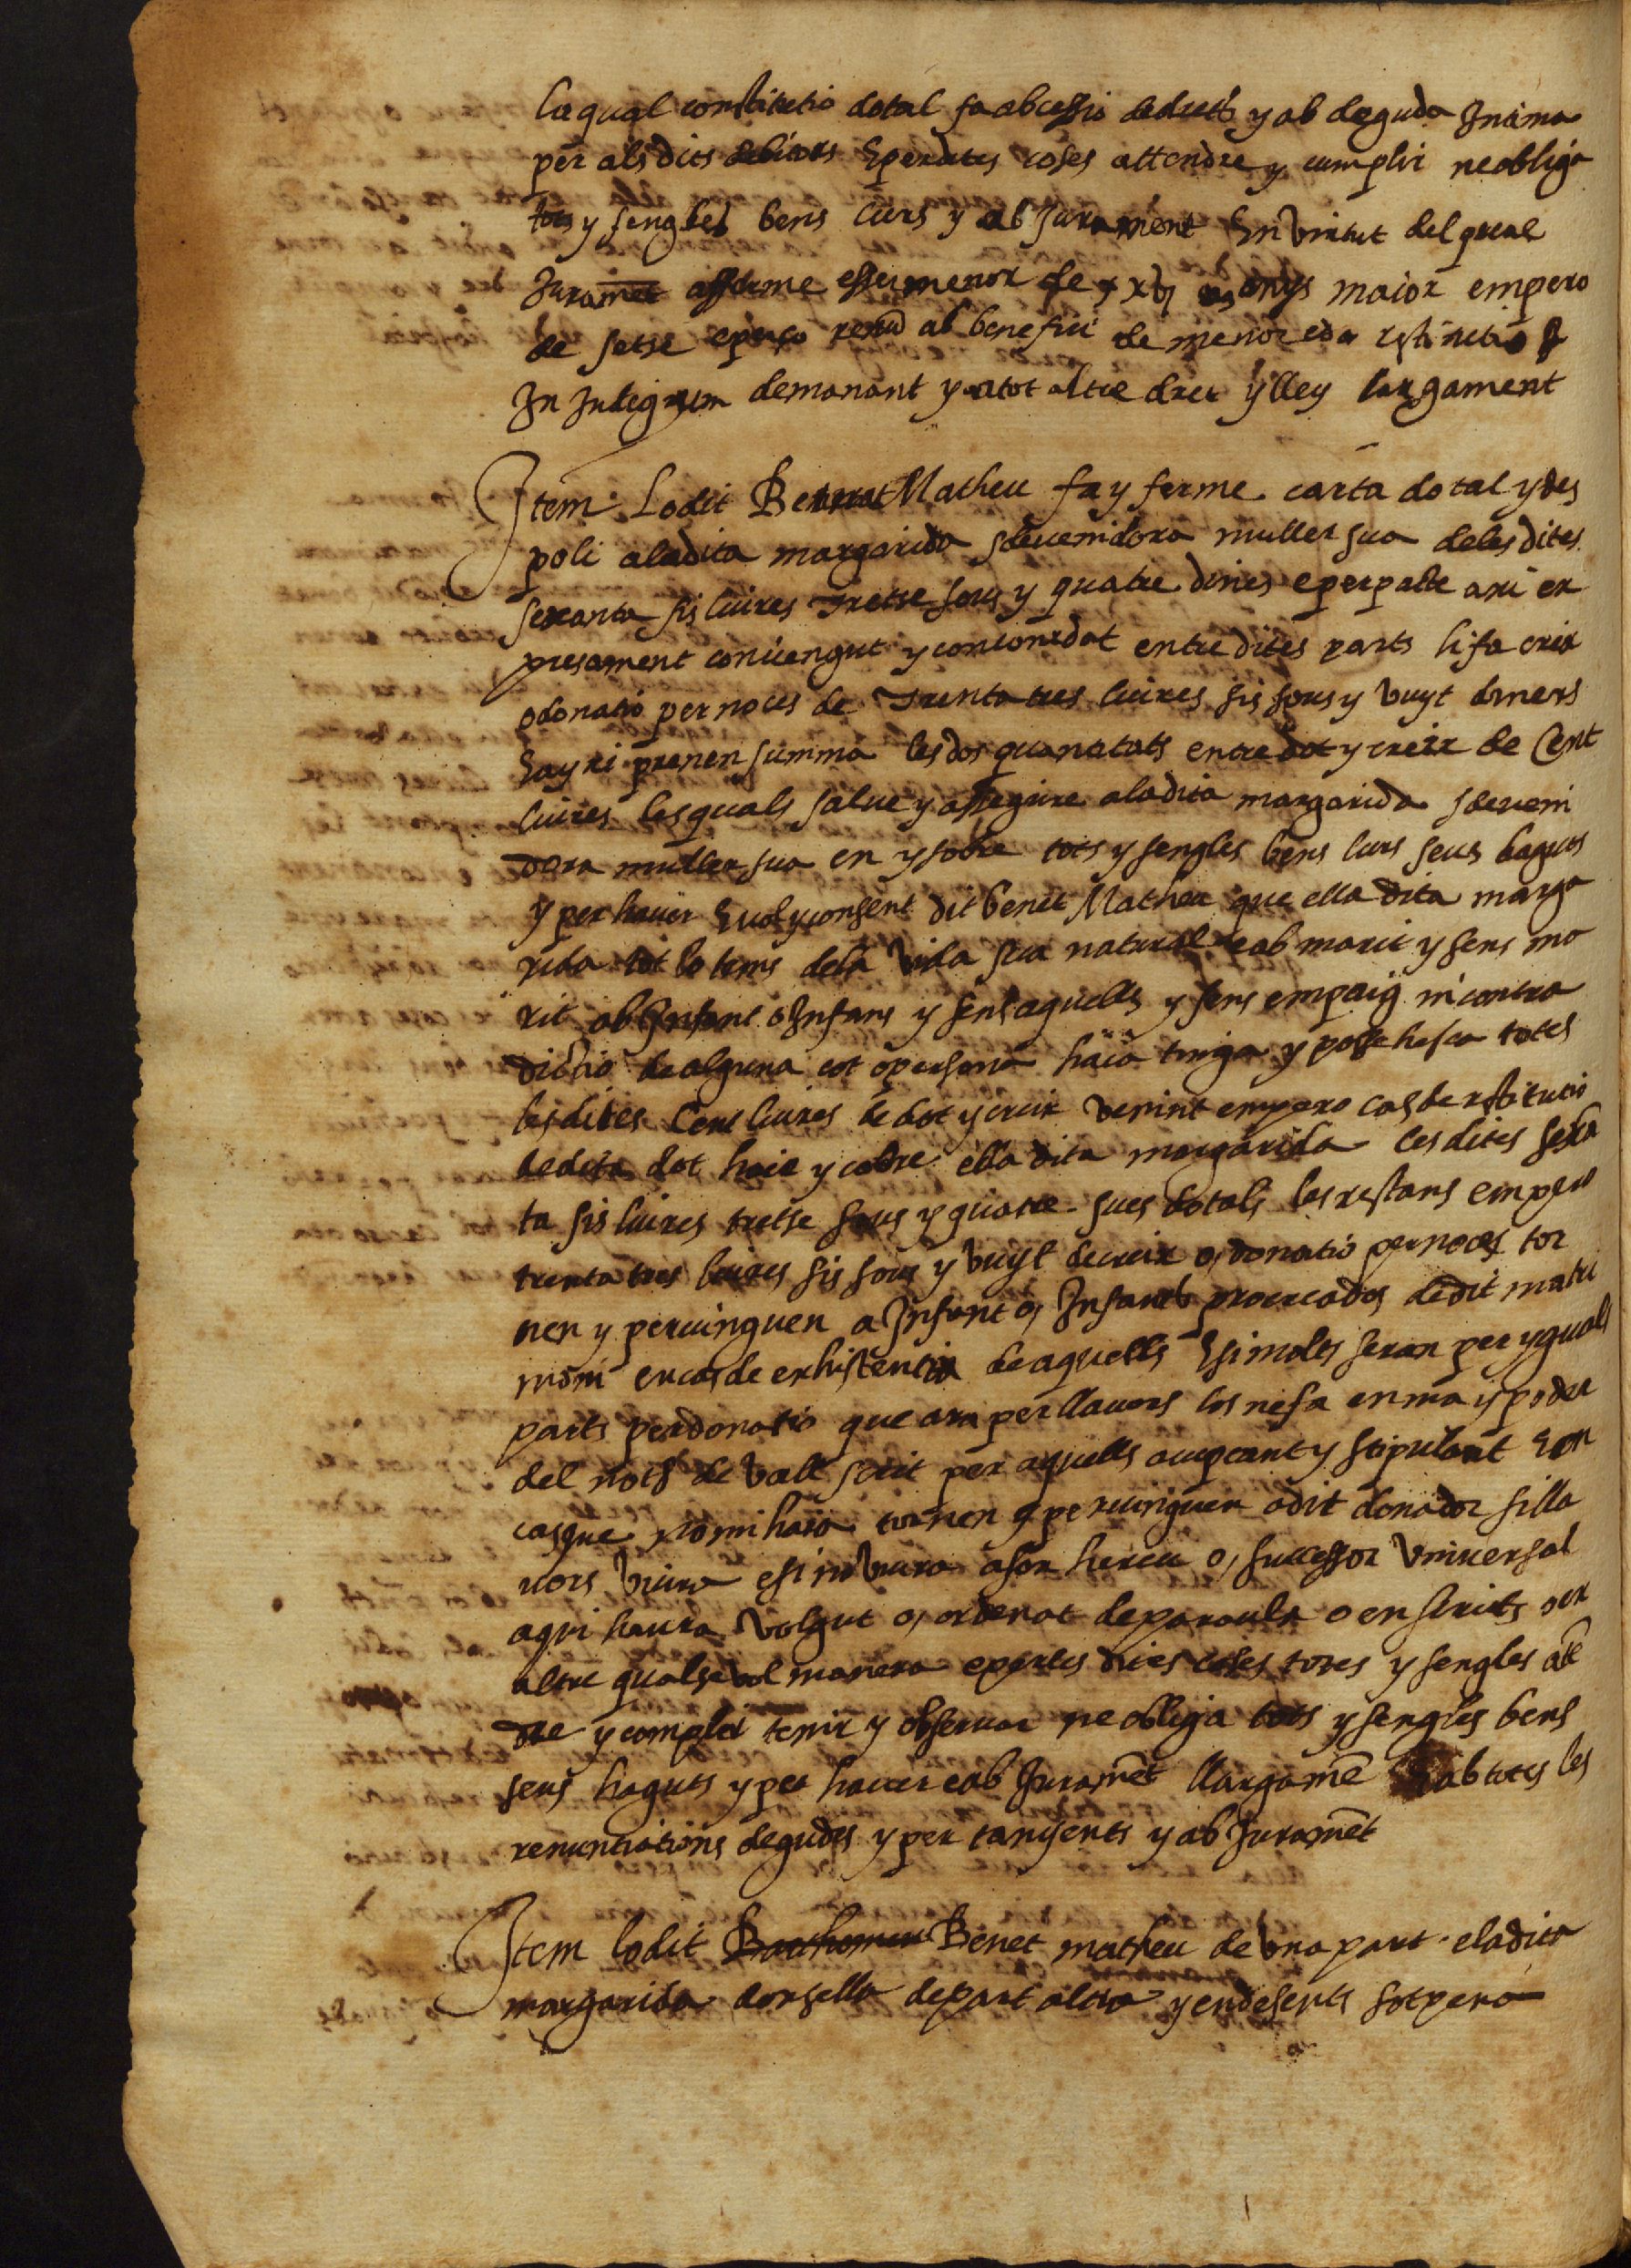 laqual constitutio dotal fa ab cessio de drets y ab deguda Intima
per als dits debitors E per dites coses attendre y cumplir ne obliga
tots y sengles bens lurs y ab Jurament En virtut del qual
Jurament afferme esser menor de xxv anys maior empero
de setse e per ço renũ al benefici de menor eda restitutio
In Integrum demanant y a tot altre dret y lley largament
Item Lodit Benet Matheu fa y ferme carta dotal y des
poli a la dita margarida sdevenidora muller sua de les dites
sexanta sis liures Tretse sous y quatre dines e per pacte axi ex
presament convengut y concordat entre dites parts li fa crex
o donatio per noces de Trenta tres liures sis sous y vuyt diners
E ayxi prenen summa les dos quantitats entre dot y creix de Cent
liures les quals salve y assegure a la dita margarida sdeveni
dora muller sua en y sobre tots y sengles bens lurs seus haguts
y per haver E vol y consent dit benet Matheu que ella dita marga
rida tot lo tems de la vida sua natural e ab marit y sens ma
rit ab Infant o Infans y sens aquells y sens empaig ni contra
dictio de alguna cot o persona haia tinga y possehesca totes
les dites Cent liures de dot y creix venint empero cas de restitutio
de dita dot haie y cobre ella dita margarida les dites sexã
ta sis liures tretse sous y quatre sues dotals les restans empero
trenta tres liures sis sous y vuyt de creix o, donatio per noces tor
nen y pervinguen a Infant o, Infants procreados de dit matri
moni en cas de exhistentia de aquells E si molts seran per yguals
parts per donatio que ara per llavors los ne fa en ma y poder
del notȝ de vall scrit per aquells acceptant y stipulant E en
cas que no ni haia tornen y pervinguen a dit donador si lla
vors viura e si no viura a son hereu o, successor universal
a qui haura volgut o, ordenat de paraula o en scrits o en
altre qualsevol manera e per les dites coses totes y sengles atẽ
dre y complir tenir y observar ne obliga tots y sengles bens
seus haguts y per haver e ab Juramẽt llargamẽ E ab totes les
renuntiations degudes y per tanyents y ab Juramẽt
Item lodit Barthomeu Benet matheu de una part e la dita
margarida donsella de part altra y en desents sot pena